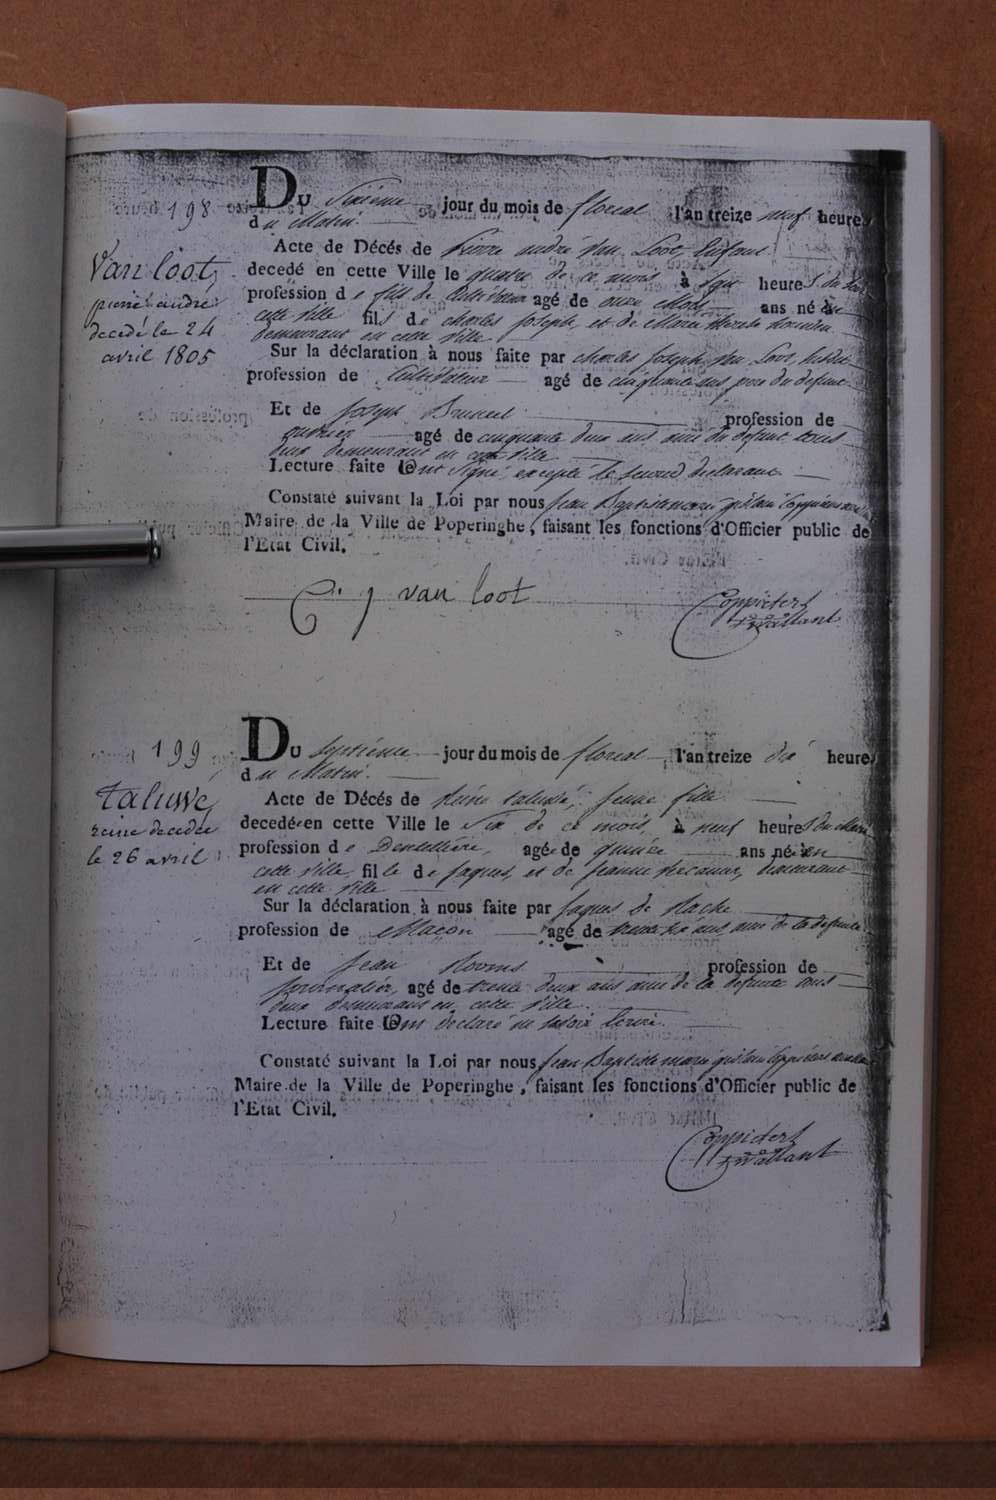 198
Van loot
pierre andré
decedé le 24
avril 1805
Du Sixième jour du mois de floreal l'an treize neuf heures
du Matin.
Acte de Décés de Pierre andré Van Loot, Enfant
decedé en cette Ville le quatre de ce mois à heures du
profession de fils de Cultivateur agé de onze Mois ans né en
cette ville fils de charles Joseph, et de Marie
demeurant en cette ville
Sur la déclaration à nous faite par charles Joseph Van Loot,
profession de Cultivateur agé de cinquante ans pere du defunt
Et de Joseph profession de
ouvrier agé de cinquante deux ans ami du defunt tous
deux demeurant en cette ville
Lecture faite Ont Signé, excepté le second declarant
Constaté suivant la Loi par nous Jean Baptiste marie
Maire de la Ville de Poperinghe, faisant les fonctions d'Officier public de
l'Etat Civil.
C. j van loot
Coppieters
199
taluwé
reine decedée
le 26 avril
Du Septième jour du mois de floreal l'an treize dix heures
du Matin.
Acte de Décés de Reine taluwé, jeune fille
decedée en cette Ville le Six de ce mois, à neuf heures du
profession de Dentellière, agée de quinze ans née en
cette ville, fille de Jaques, et de Jeanne demeurant
en cette ville
Sur la déclaration à nous faite par Jaques de
profession de Maçon agé de ans ami de la defunte
Et de Jean profession de
Journalier, agé de trente deux ans ami de la defunte tous
deux demeurans en cette ville
Lecture faite Ont declaré ne savoir Ecrire.
Constaté suivant la Loi par nous Jean Baptiste marie
Maire de la Ville de Poperinghe, faisant les fonctions d'Officier public de
l'Etat Civil.
Coppieters